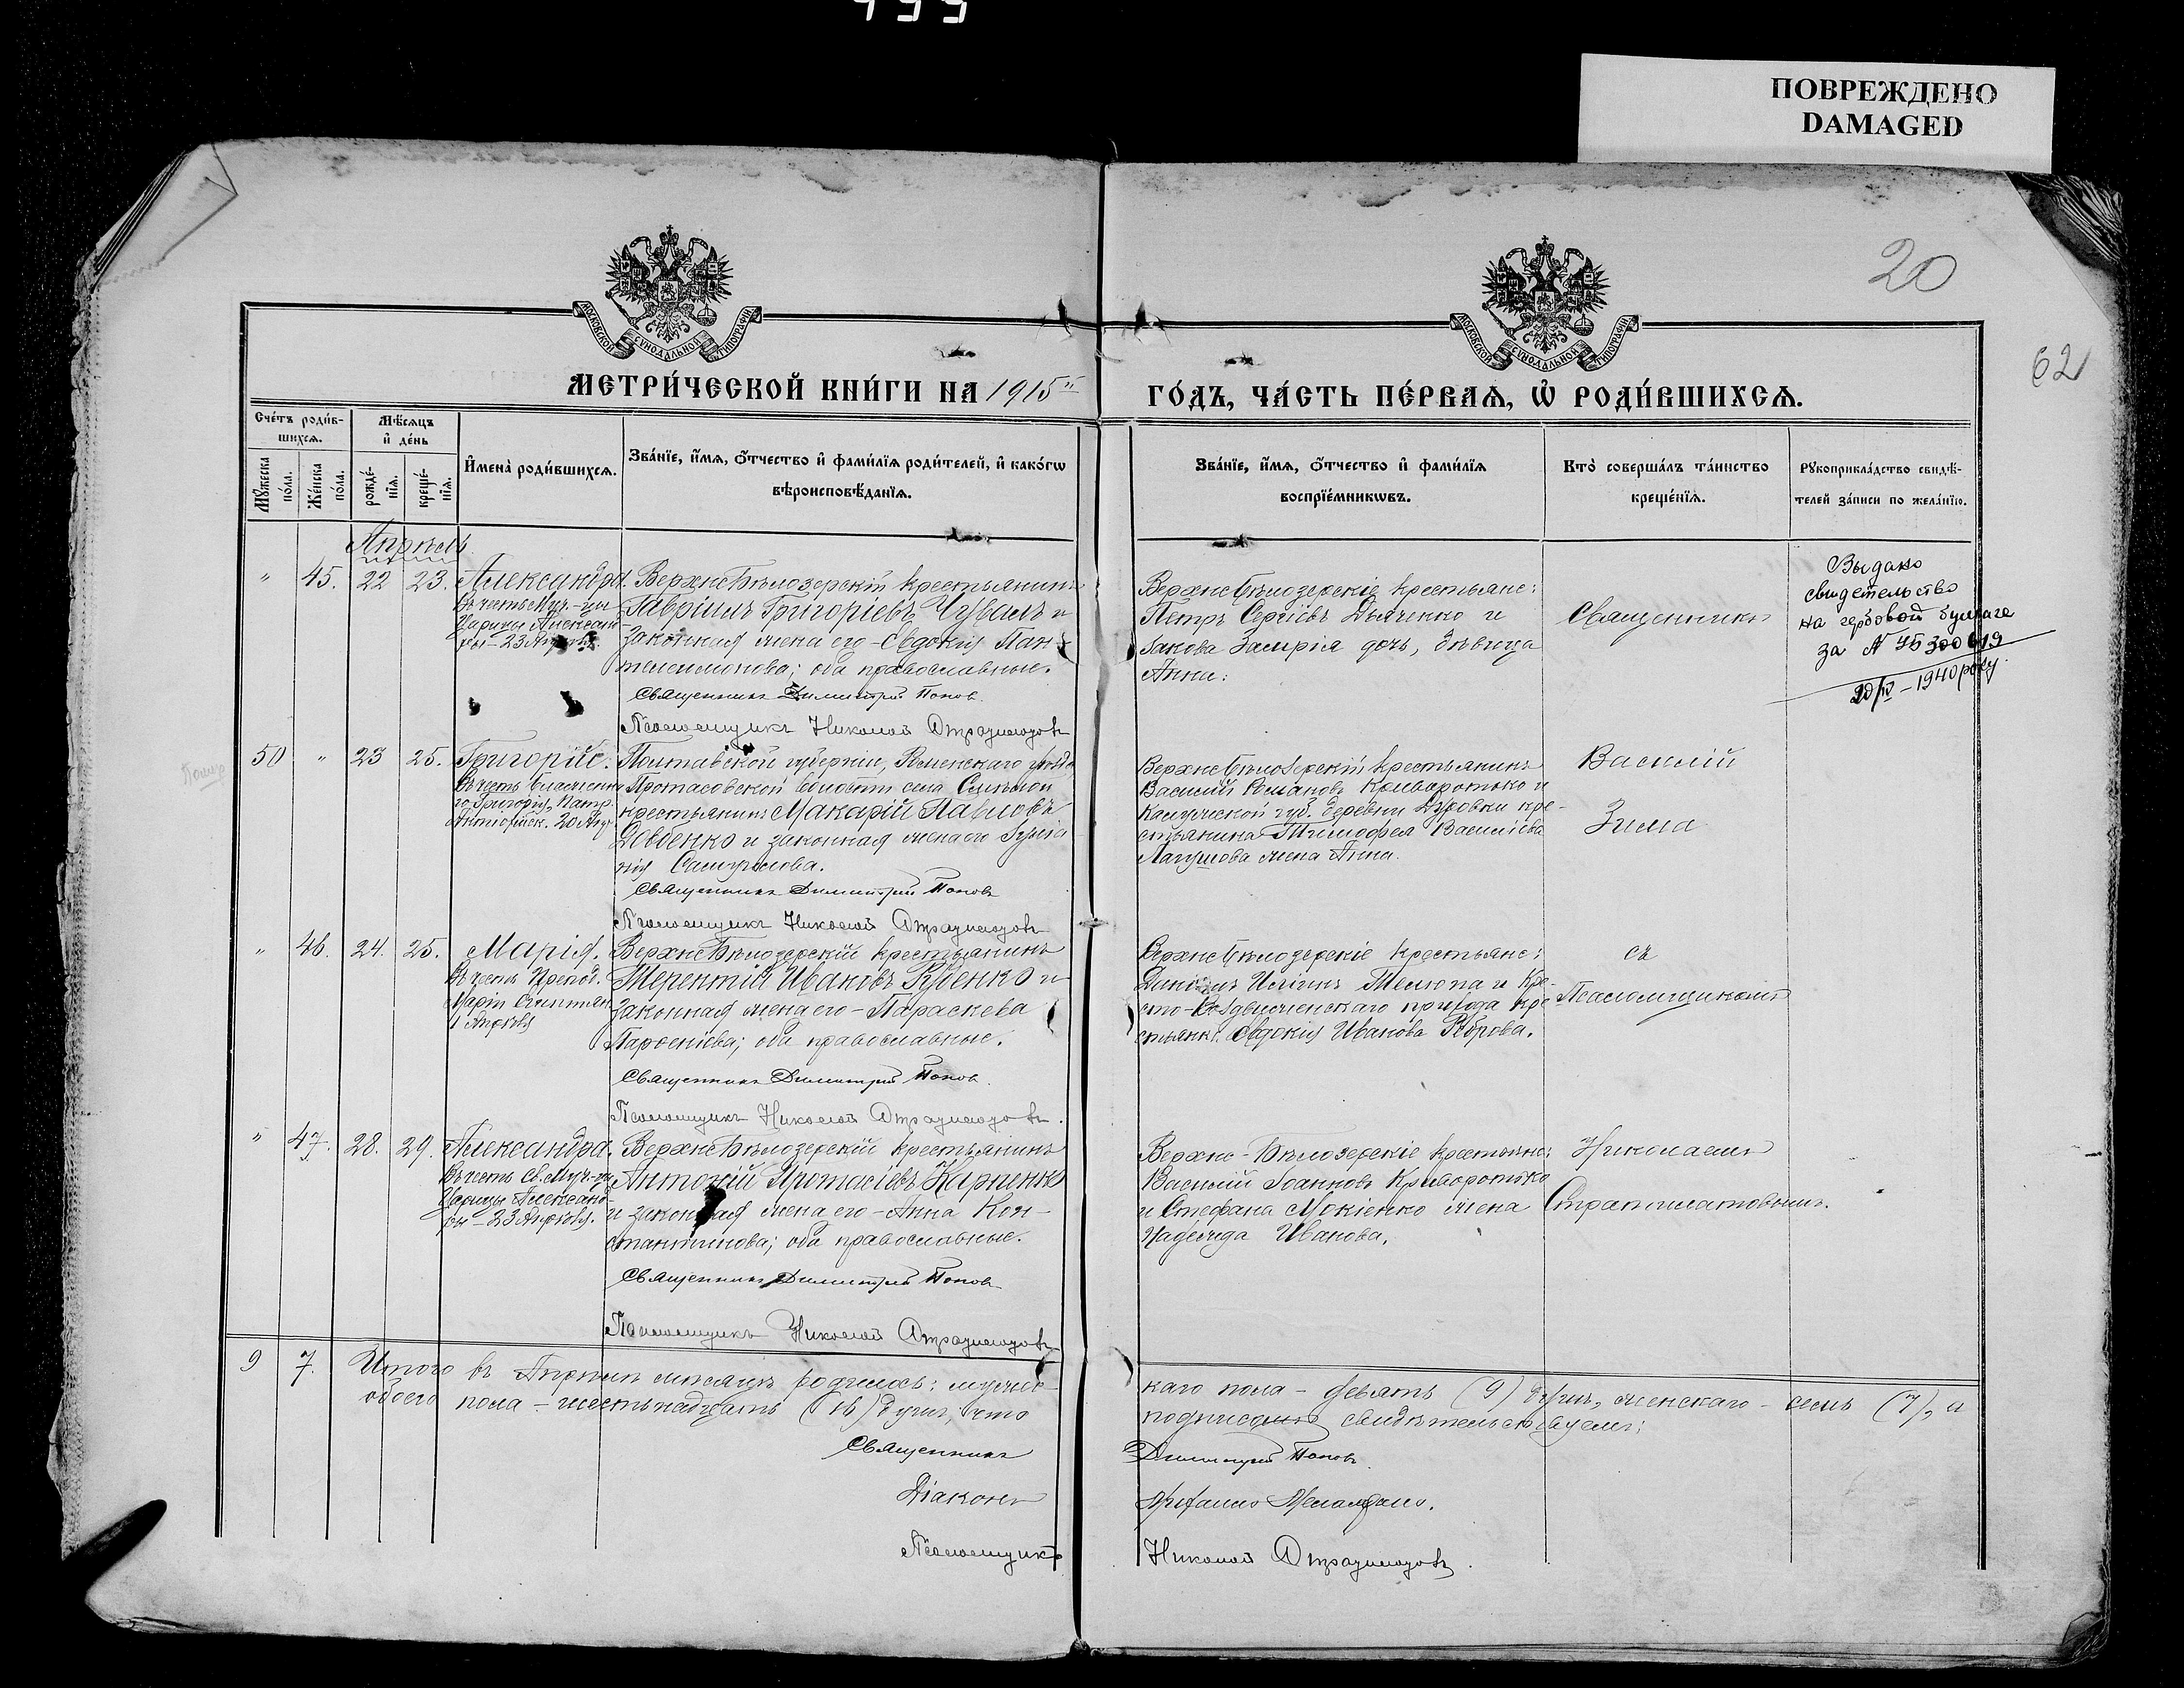 ПОВРЕЖДЕНО
DAMAGED
20
62
МОСКОВСКОЙ СѴНОДАЛЬНОЙ ТИПОГРАФІИ
МОСКОВСКОЙ СѴНОДАЛЬНОЙ ТИПОГРАФІИ
МЕТРИ́ЧЕСКОЙ КНИ́ГИ НА 1915 й
ГО́ДЪ, ЧА́СТЬ ПЕ́РВАЯ, Ѡ РОДИ́ВШИХСЯ.
Сче́тъ роди́в-
шихся.
Мѣ́сяцъ
и де́нь
Мꙋ́жеска по́ла.
Же́нска по́ла.
рожде́-
нія.
креще́-
нія.
Имена̀ роди́вшихся.
Зва́нїе, и́мя, ѻ́тчество и фами́лїя роди́телей, и како́гѡ
вѣроисповѣ́данїя.
Зва́нїе, и́мя, ѻ́тчество и фами́лїя
воспрїе́мникѡвъ.
Кто̀ соверша́лъ та́инство
креще́нїя.
Рꙋкоприкла́дство свидѣ́-
телей за́писи по жела́нїю.
Апрѣль
" 45. 22 23. Александра.
Въ честь Муч-цы
Царицы Алексан-
ры - 23 Апрѣля.
Верхнебѣлозерскій крестьянинъ
Гавріилъ Григоріевъ Чувалъ и
законная жена его - Евдокія Пан-
телеимонова; оба православные.
Священникъ Димитрій Поповъ
Псаломщикъ Николай
Верхнебѣлозерскіе крестьяне:
Петръ Сергіевъ Дьяченко и
Іакова дочь, дѣвица
Анна:
Священникъ
Выдано
свидетельство
на гербовой бумаге
за № 45300619
20/IV - 1940 року.
50 " 23 25. Григорій.
Въ честь
го Григорія, Патр.
Антіохійск. 20 Апр.
Полтавской губерніи, Роменскаго уѣзда,
Протасовской волости села
крестьянинъ Макарій Павловъ
Довбенко и законная жена его Іуліа-
нія Самуилова.
Священникъ Димитрій Поповъ
Псаломщикъ Николай
Верхнебѣлозерскій крестьянинъ
Василій Криворотько и
Калужской губ. деревни Дубровки кре-
стьянина Тимофея Васильева
жена Анна.
Василій
Зима
" 46. 24. 25. Марія.
Въ честь Препод.
Маріи Египтян.
1 Апрѣля
Верхнебѣлозерскій крестьянинъ
Терентій Ивановъ Рубенко и
законная жена его - Параскева
Парѳеніева; оба православные.
Священникъ Димитрій Поповъ
Псаломщикъ Николай
Верхнебѣлозерскіе крестьяне:
Даніилъ Иліинъ и Кре-
сто-Воздвиженскаго прихода кре-
стьянка Евдокія Иванова Реброва.
съ
Псаломщикомъ
" 47. 28. 29. Александра.
Въ честь Св. Муч-цы
Царицы Александ-
ры - 23 Апрѣля.
Верхнебѣлозерскій крестьянинъ
Антоній Протасіевъ Карпенко
и законная жена его - Анна Кон-
стантинова; оба православные.
Священникъ Димитрій Поповъ
Псаломщикъ Николай
Верхне-Бѣлозерскіе крестьяне:
Василій Іоанновъ Криворотько
и Стефана Мокіенко жена
Надежда Иванова.
Николаемъ
9 7. Итого въ Апрѣлѣ мѣсяцѣ родилось: мужес-
каго пола - девять (9) душъ, женскаго - семь (7), а
обоего пола - шестьнадцать (16) душъ, что
подписомъ свидѣтельствуемъ:
Священникъ Димитрій Поповъ
Діаконъ
Псаломщикъ Николай